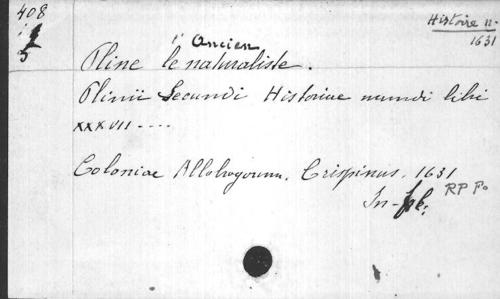 408
Histoire n.
1631
5
" Ancien
Pline le naturaliste.
Plinii Secundi Historiae mundi libri
XXXVII ----
Coloniae Allobrogorum. Crispinus. 1631
RP Fo
In-fol.